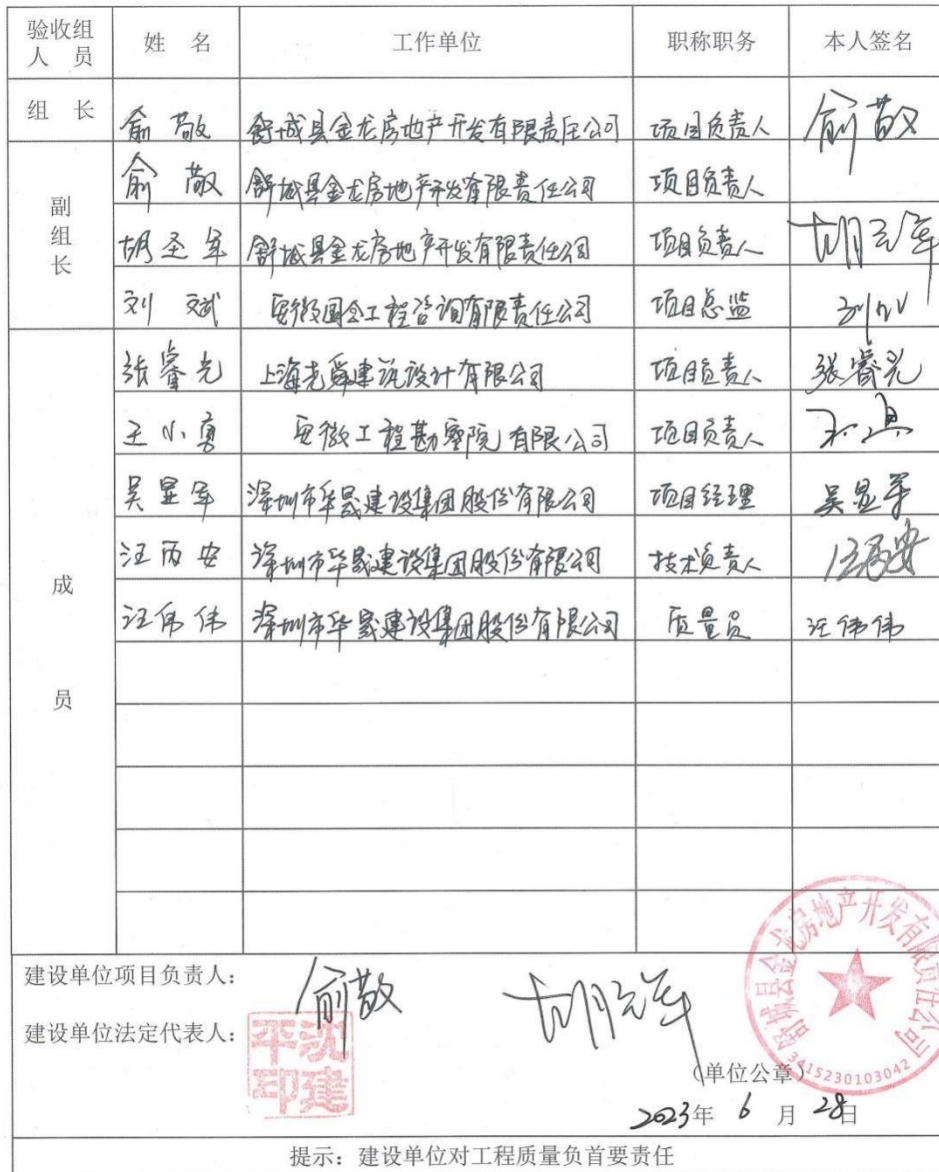 验收组人员 姓 名 工作单位 职称职务 本人签名
组 长 俞敬 舒城县金龙房地产开发有限责任公司 项目负责人 俞敬
副组长 俞敬 舒城县金龙房地产开发有限责任公司 项目负责人
胡圣军 舒城县金龙房地产开发有限责任公司 项目负责人
刘斌 安徽国合工程咨询有限责任公司 项目总监
成员 张睿光 上海尧舜建筑设计有限公司 项目负责人 张睿光
王小勇 安徽工程勘察院有限公司 项目负责人
吴显军 深圳市华晟建设集团股份有限公司 项目经理 吴显军
汪丙安 深圳市华晟建设集团股份有限公司 技术负责人 汪丙安
汪伟伟 深圳市华晟建设集团股份有限公司 质量员 汪伟伟
建设单位项目负责人： 俞敬
建设单位法定代表人： 沈建平印
舒城县金龙房地产开发有限责任公司
3415230103042
（单位公章）
2023年 6 月 28日
提示：建设单位对工程质量负首要责任